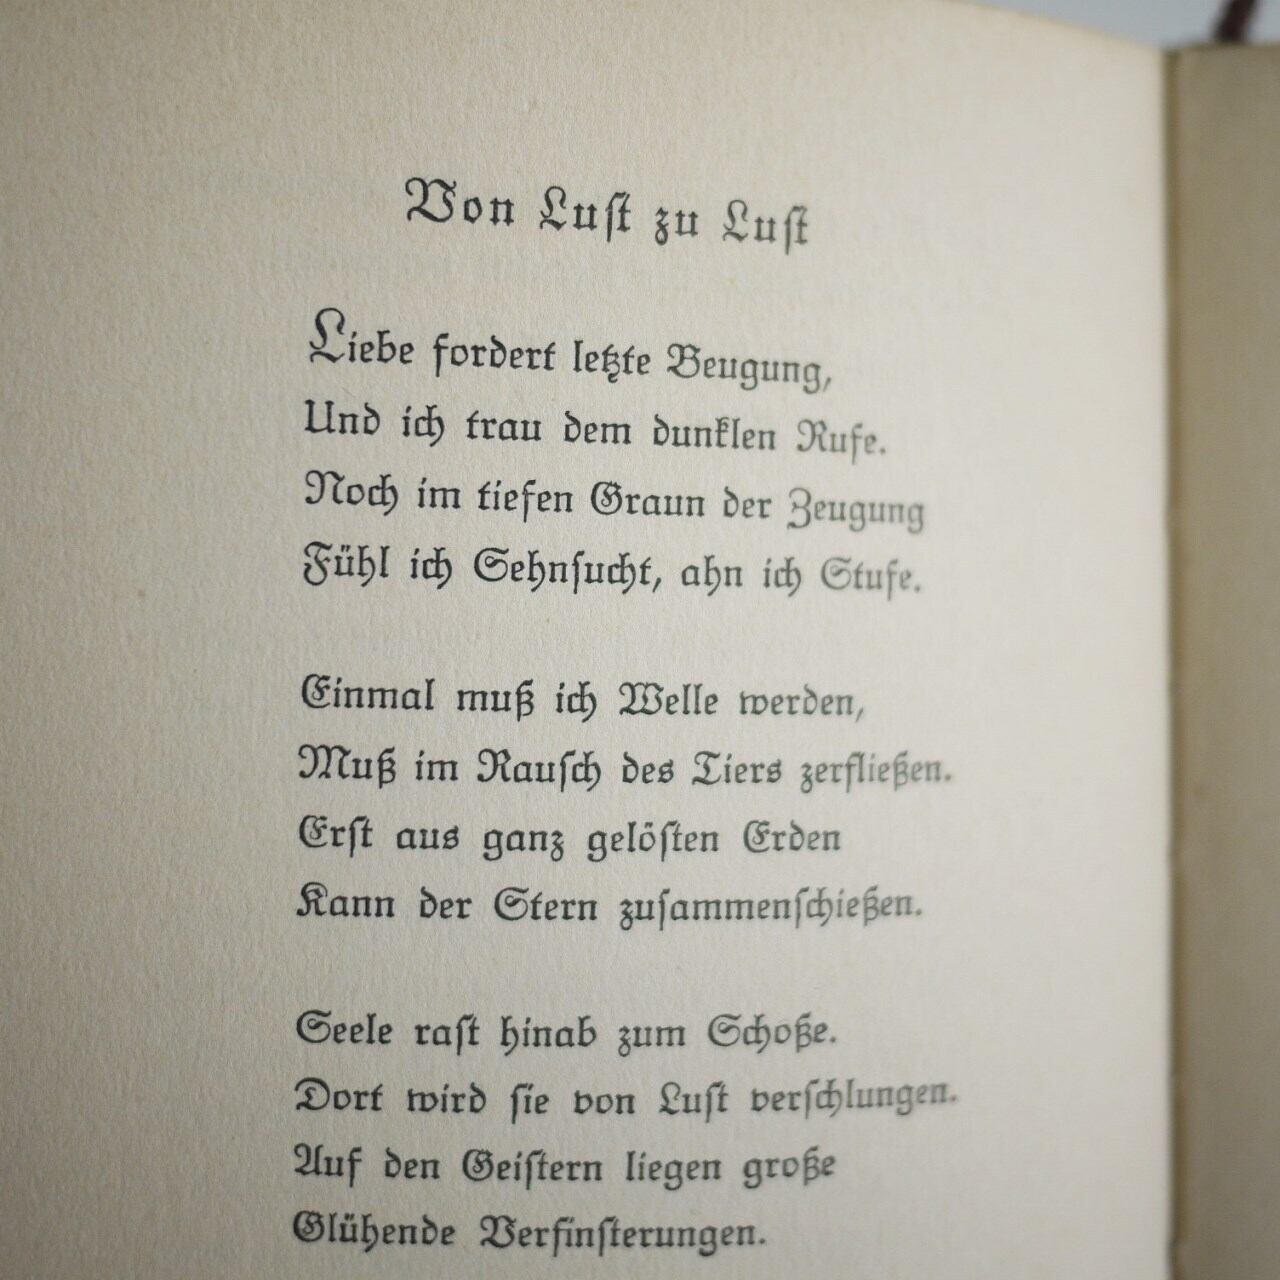 Von Luſt zu Luſt
Liebe fordert letzte Beugung,
Und ich trau dem dunklen Rufe.
Noch im tiefen Graun der Zeugung
Fühl ich Sehnſucht, ahn ich Stufe.
Einmal muß ich Welle werden,
Muß im Rauſch des Tiers zerfließen.
Erſt aus ganz gelöſten Erden
Kann der Stern zuſammenſchießen.
Seele raſt hinab zum Schoße.
Dort wird ſie von Luſt verſchlungen.
Auf den Geiſtern liegen große
Glühende Verfinſterungen.